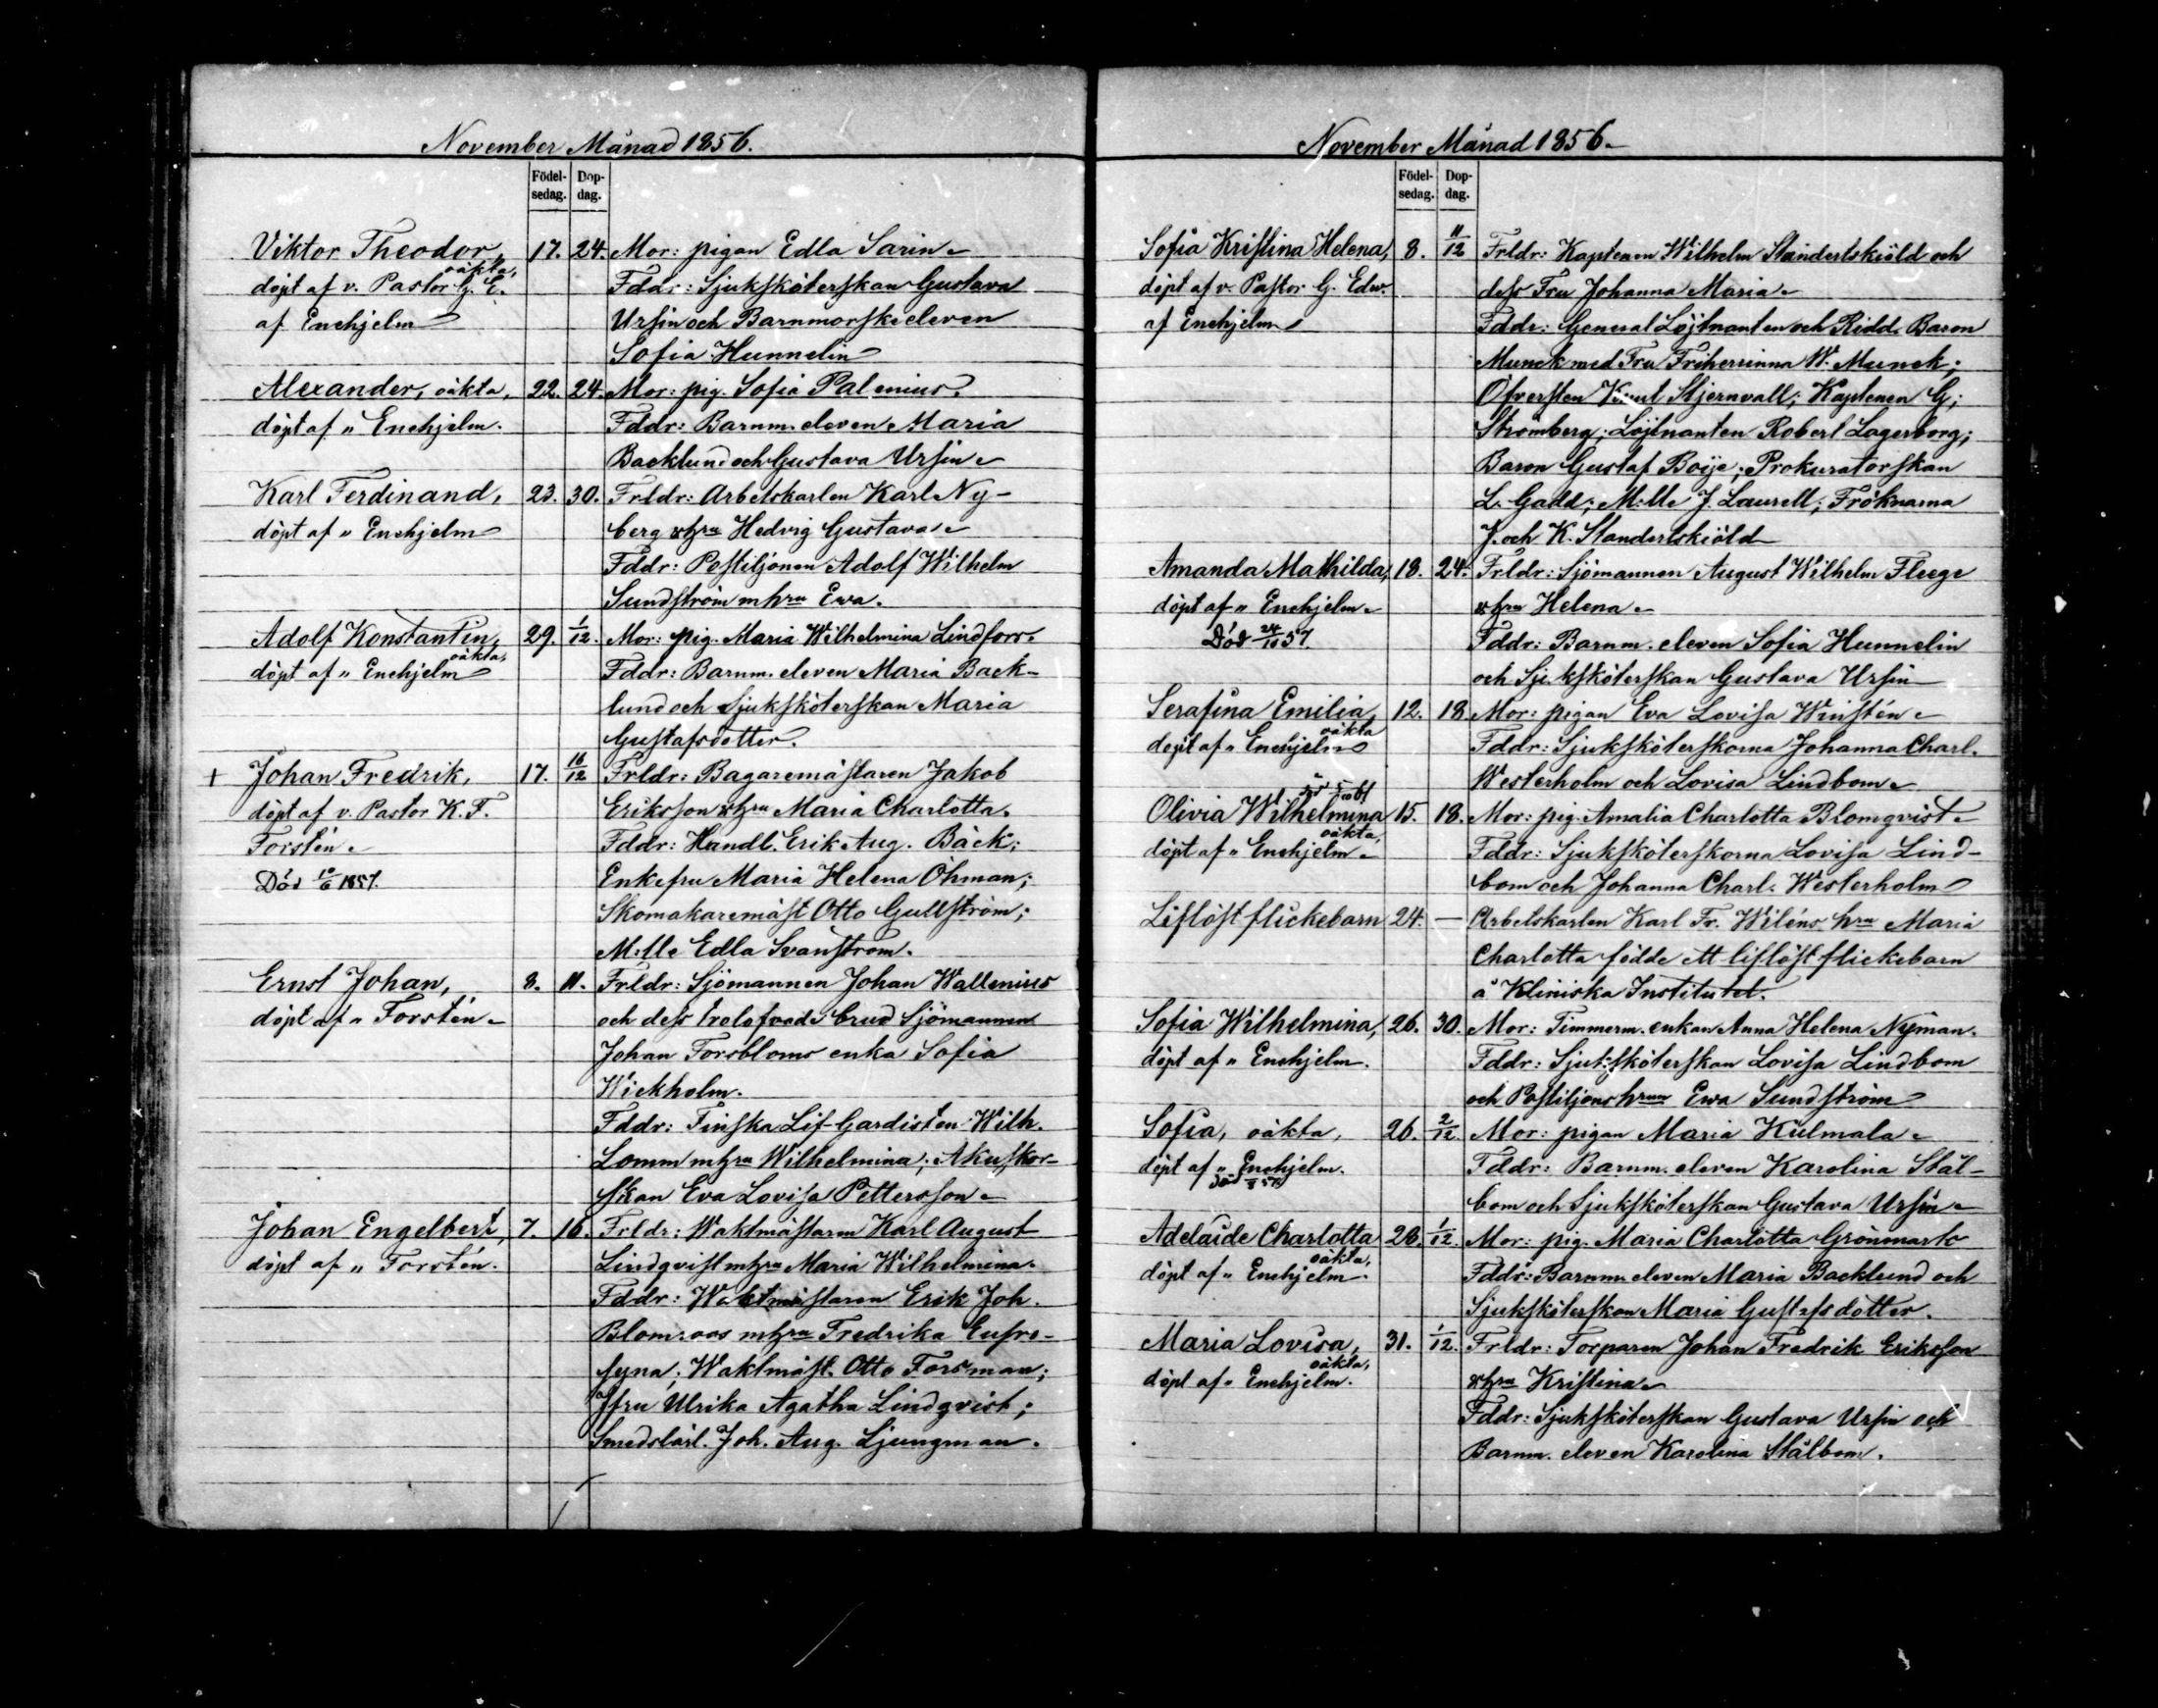 November Månad 1856.
Födel- Dop-
sedag. dag.
Viktor Theodor, 17. 24. Mor: pigan Edla Sarin
oäkta,
döpt af v. Pastor G. E. Fddr: Sjuksköterskan Gustava
af Enehjelm Ursin och Barnmorskeeleven
Sofia Hunnelin
Alexander, oäkta, 22. 24. Mor: pig. Sofia Palenius.
döpt af " Enehjelm. Fddr: Barnm. eleven Maria
Backlund och Gustava Ursin
Karl Ferdinand, 23. 30. Frldr: Arbetskarlen Karl Ny-
döpt af " Enehjelm berg o. h:ru Hedvig Gustava
Fddr: Postiljonen Adolf Wilhelm
Sundström m. h:ru Eva.
Adolf Konstantin, 29. 1/12. Mor: pig. Maria Wilhelmina Lindfors
oäkta,
döpt af " Enehjelm Fddr: Barnm. eleven Maria Back-
lund och Sjuksköterskan Maria
Gustafsdotter.
+ Johan Fredrik, 17. 16/12 Frldr: Bagaremästaren Jakob
döpt af v. Pastor K. F. Eriksson o. h:ru Maria Charlotta.
Forstén Fddr: Handl. Erik Aug. Bäck;
Död 10/6 1857. Enkefru Maria Helena Öhman;
Skomakaremäst Otto Gullström;
M:lle Edla Svanström.
Ernst Johan, 8. 11. Frldr: Sjömannen Johan Wallenius
döpt af " Forstén och dess trolofvade brud Sjömannen
Johan Forsbloms enka Sofia
Wickholm.
Fddr: Finska Lif-Gardisten Wilh.
Lomm m. h:ru Wilhelmina; Akuskor-
skan Eva Lovisa Pettersson
Johan Engelbert, 7. 16. Frldr: Waktmästaren Karl August
döpt af " Forstén. Lindqvist m. h:ru Maria Wilhelmina.
Fddr: Waktmästaren Erik Joh.
Blomroos m. h:ru Fredrika Eufro-
syna; Waktmäst. Otto Forsman;
Jfru Ulrika Agatha Lindqvist;
Smedslärl. Joh. Aug. Ljungman.
November Månad 1856.
Födel- Dop-
sedag. dag.
Sofia Kristina Helena, 8. 11/12 Frldr: Kaptenen Wilhelm Standertskiöld och
döpt af v. Pastor G. Edw. dess Fru Johanna Maria
af Enehjelm Fddr: General Löjtnanten och Ridd. Baron
Munck med Fru Friherrinna W. Munck;
Öfversten Knut Stjernvall; Kaptenen G;
Strömberg; Löjtnanten Robert Lagerborg;
Baron Gustaf Boije; Prokuratorskan
L. Gadd; M:lle J. Laurell; Fröknarna
J. och K. Standertskiöld
Amanda Mathilda, 18. 24. Frldr: Sjömannen August Wilhelm Fleege
döpt af " Enehjelm o. h:ru Helena
Död 24/10 57. Fddr: Barnm. eleven Sofia Hunnelin
och Sjuksköterskan Gustava Ursin
Serafina Emilia, 12. 18. Mor: pigan Eva Lovisa Winstén
oäkta
döpt af " Enehjelm Fddr: Sjuksköterskorna Johanna Charl.
Westerholm och Lovisa Lindbom
Olivia Wilhelmina 15. 18. Mor: pig. Amalia Charlotta Blomqvist
oäkta,
döpt af " Enehjelm Fddr: Sjuksköterskorna Lovisa Lind-
bom och Johanna Charl. Westerholm
Liflöst flickebarn 24. — Arbetskarlen Karl Fr. Wiléns h:ru Maria
Charlotta födde ett liflöst flickebarn
å Kliniska Institutet.
Sofia Wilhelmina, 26. 30. Mor: Timmerm. enkan Anna Helena Nyman.
döpt af " Enehjelm. Fddr: Sjuksköterskan Lovisa Lindbom
och Postiljons h:run Eva Sundström
Sofia, oäkta, 26. 2/12 Mor: pigan Maria Kulmala
döpt af " Enehjelm. Fddr: Barnm. eleven Karolina Stål-
bom och Sjuksköterskan Gustava Ursin
Adelaide Charlotta 28. 1/12. Mor: pig. Maria Charlotta Grönmark
oäkta,
döpt af " Enehjelm. Fddr: Barnm. eleven Maria Backlund och
Sjuksköterskan Maria Gustafsdotter.
Maria Lovisa, 31. 1/12. Frldr: Torparen Johan Fredrik Eriksson
oäkta,
döpt af " Enehjelm. o. h:ru Kristina
Fddr: Sjuksköterskan Gustava Ursin och
Barnm. eleven Karolina Stålbom.